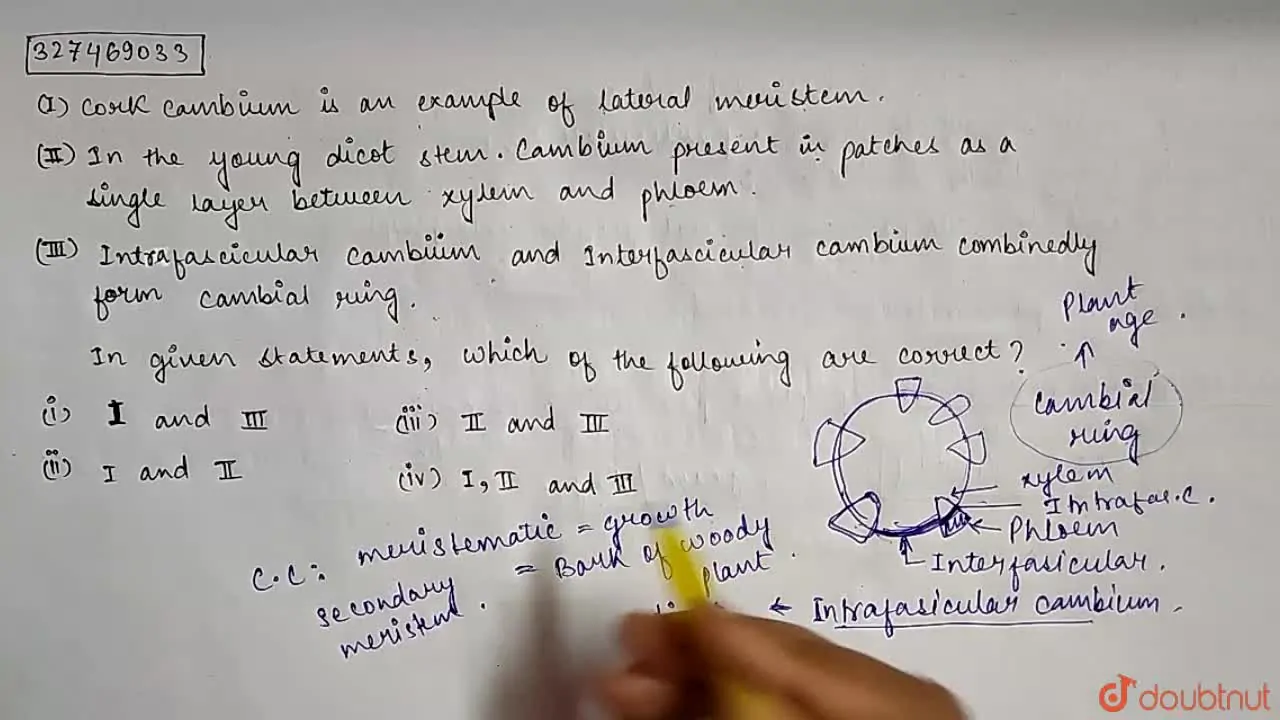 327469033
(I) Cork cambium is an example of lateral meristem.
(II) In the young dicot stem. Cambium present in patches as a
single layer between xylem and phloem.
(III) Intrafascicular cambiium and Interfascicular cambium combinedly
form cambial ring.
In given statements, which of the following are correct?
(i) I and III
(iii) II and III
(ii) I and II
(iv) I, II and III
Plant
age.
↑
cambial
ring
xylem
Intrafas.c.
Phloem
Interfasicular.
← Intrafasicular cambium.
C.C: meristematic = growth
secondary = Bark of woody
meristem. plant.
doubtnut